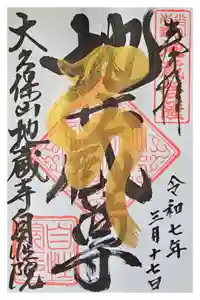 奉拝
令和七年
三月十七日
地蔵尊
大久保山地蔵寺自性院